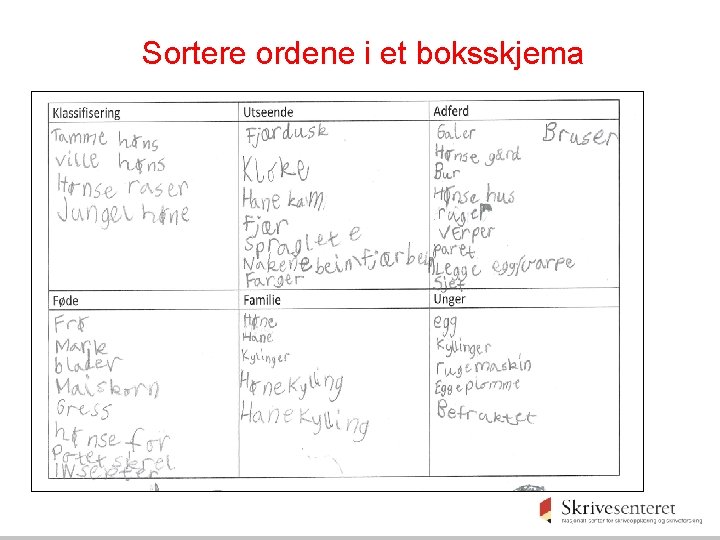 Sortere ordene i et boksskjema
Klassifisering
Tamme høns
ville høns
Hønse raser
Jungel høne
Utseende
Fjordusk
Kløke
Hane kam
Fjær
Spraglet e
Nakene bein fjærbein
Farger
Adferd
Galer
Bruser
Hønse gård
Bur
Hønse hus
ruger
verper
paret
Legge egg/varpe
Sjef
Føde
Frø
Marjk
blader
Maiskorn
Gress
hønse for
Potet skrel
Insekter
Familie
Høne
Hane
Kylinger
Høne Kylling
Hane Kylling
Unger
egg
Kyllinger
rugemaskin
Eggeplomme
Befraktet
Skrivesenteret
Nasjonalt senter for skriveopplæring og skriveforsking